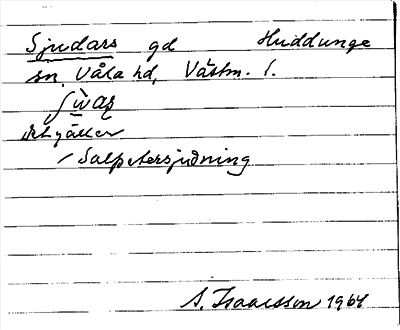 Sjudars gd Huddunge
sn, Våla hd, Västm. l.
det gäller
Salpetersjudning
S. Isaacsson 1961